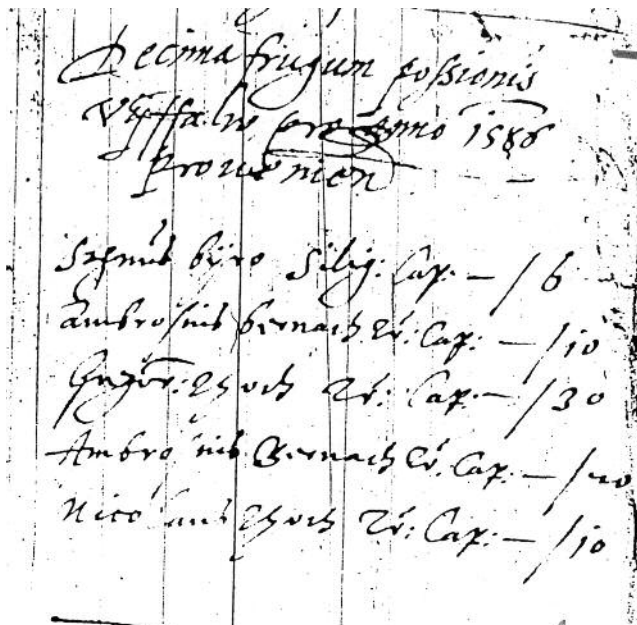 Decima frugum possionis
Vyffalw pro Anno 1586
prouenien
byro Silig: Cap: — / 6
Ambrosius Bernach Tr: Cap: — / 10
Gregor: Thoth Tr: Cap: — / 30
Ambrosius Bernach Tr: Cap: —
Nicolaus Thoth Tr: Cap: — / 10